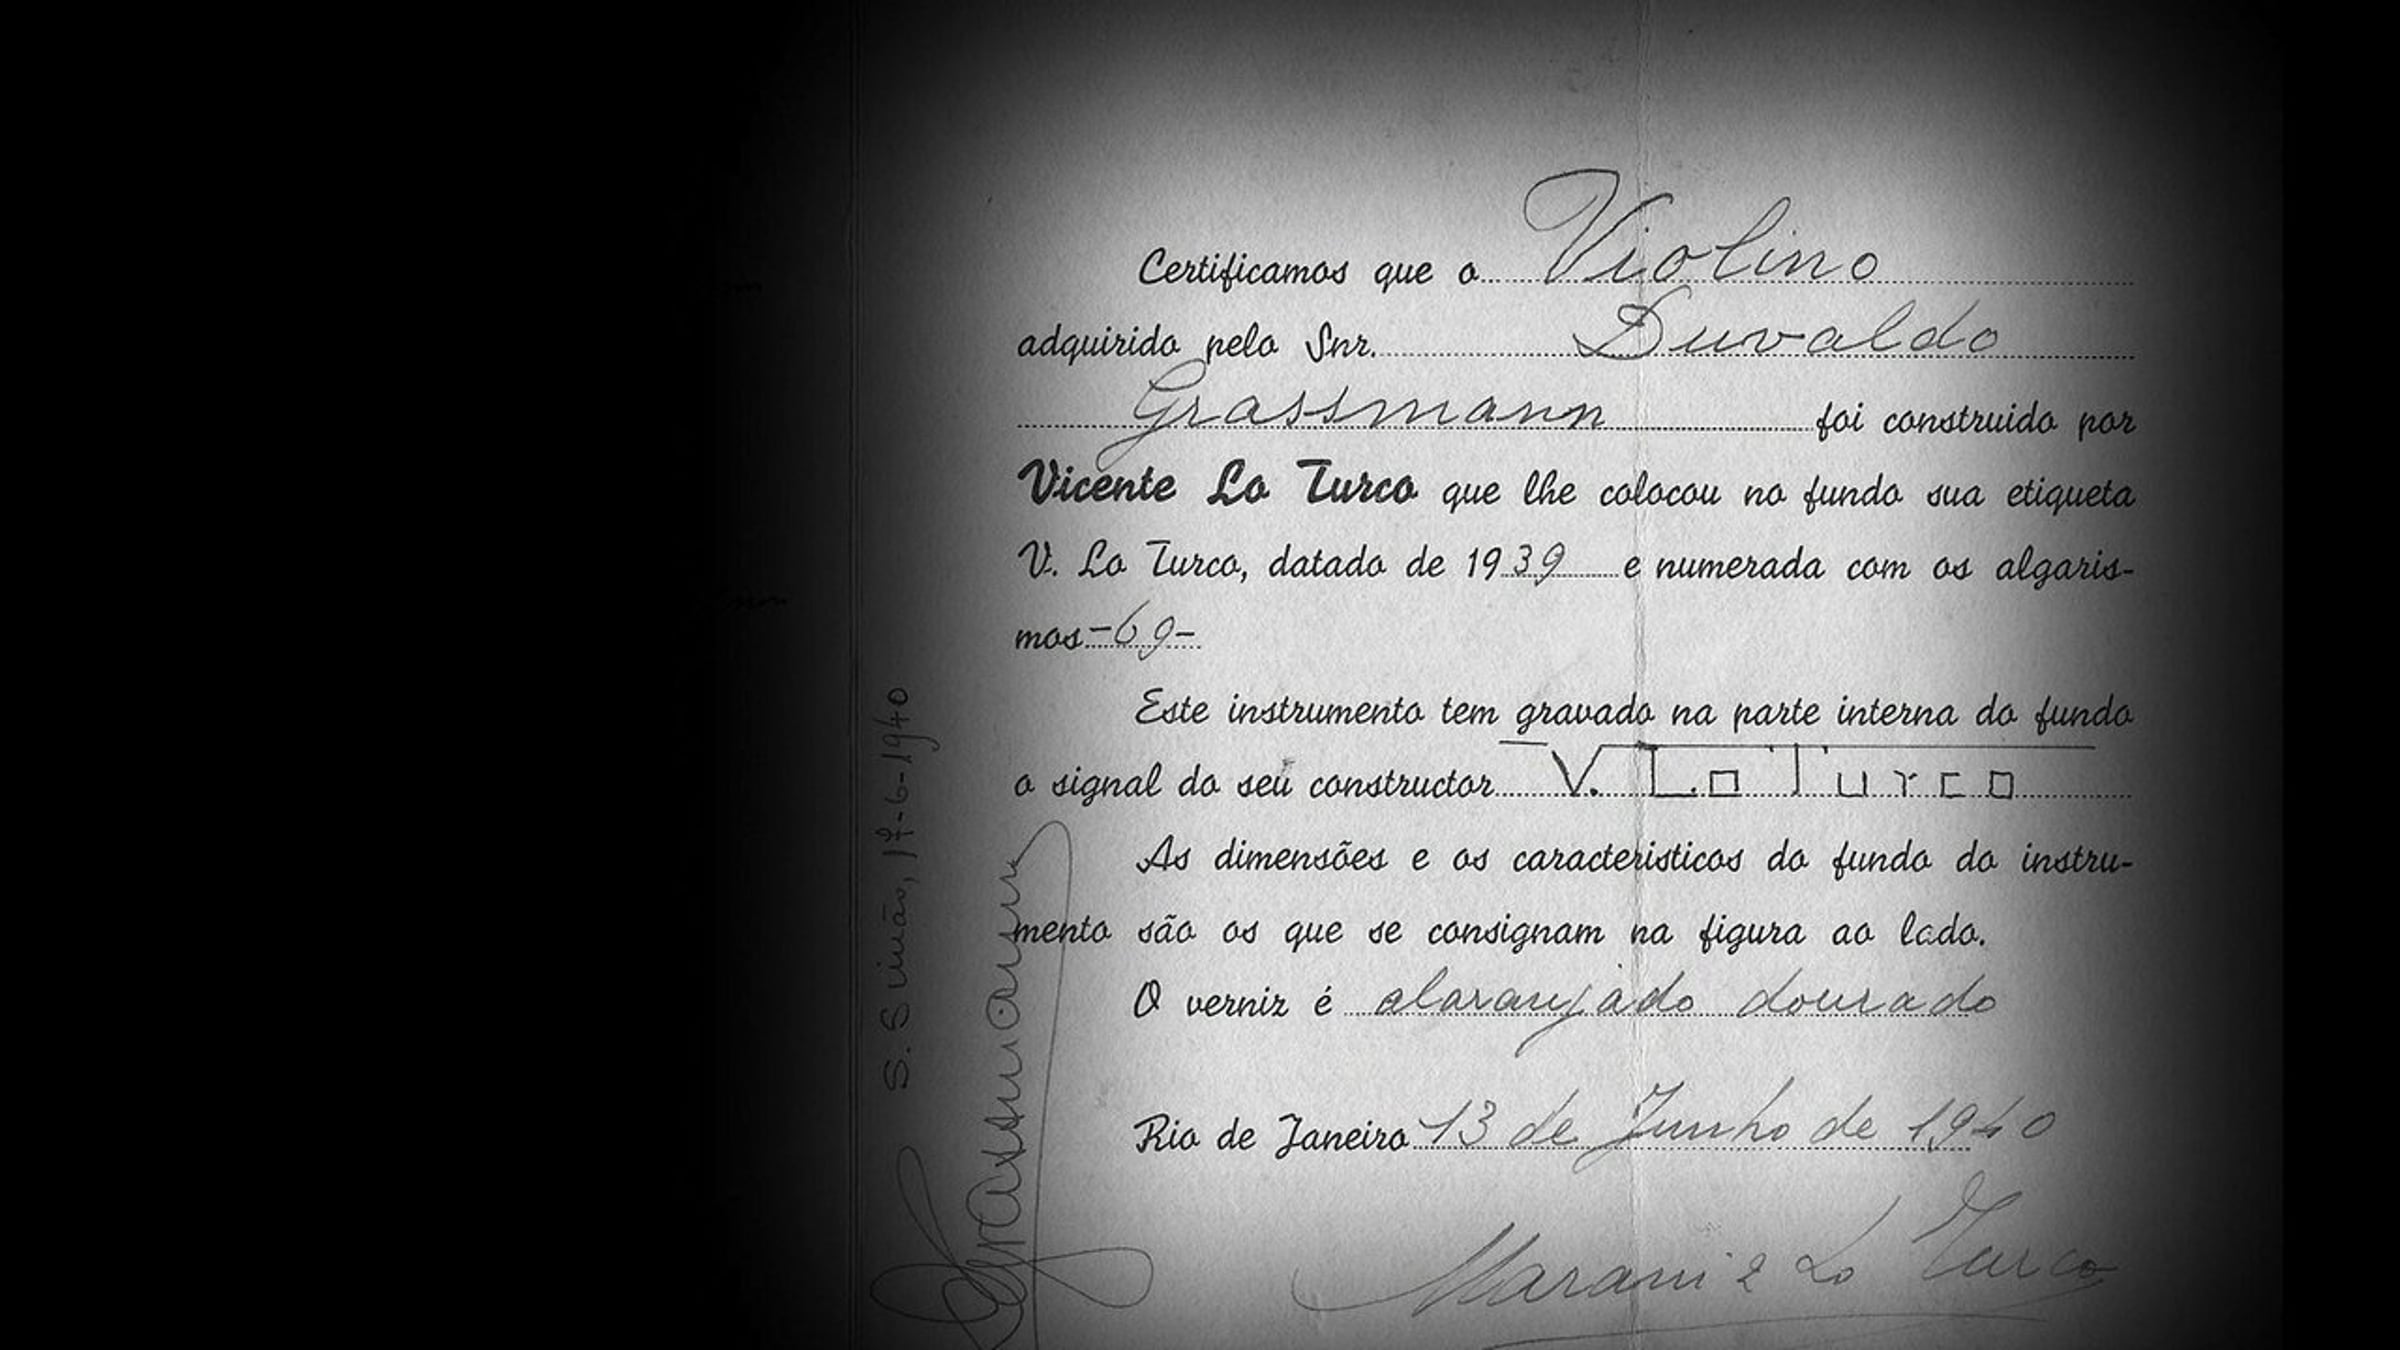 Certificamos que o Violino
adquirido pelo Snr. Duvaldo
Grassmann foi construido por
Vicente Lo Turco que lhe colocou no fundo sua etiqueta
V. Lo Turco, datado de 1939 e numerada com os algaris-
mos -69-
Este instrumento tem gravado na parte interna do fundo
o signal do seu constructor V. Lo Turco
As dimensões e os caracteristicos do fundo do instru-
mento são os que se consignam na figura ao lado.
O verniz é alaranjado dourado
Rio de Janeiro 13 de Junho de 1940
Marani & Lo Turco
S. Simão, 17-6-1940
Grassmann